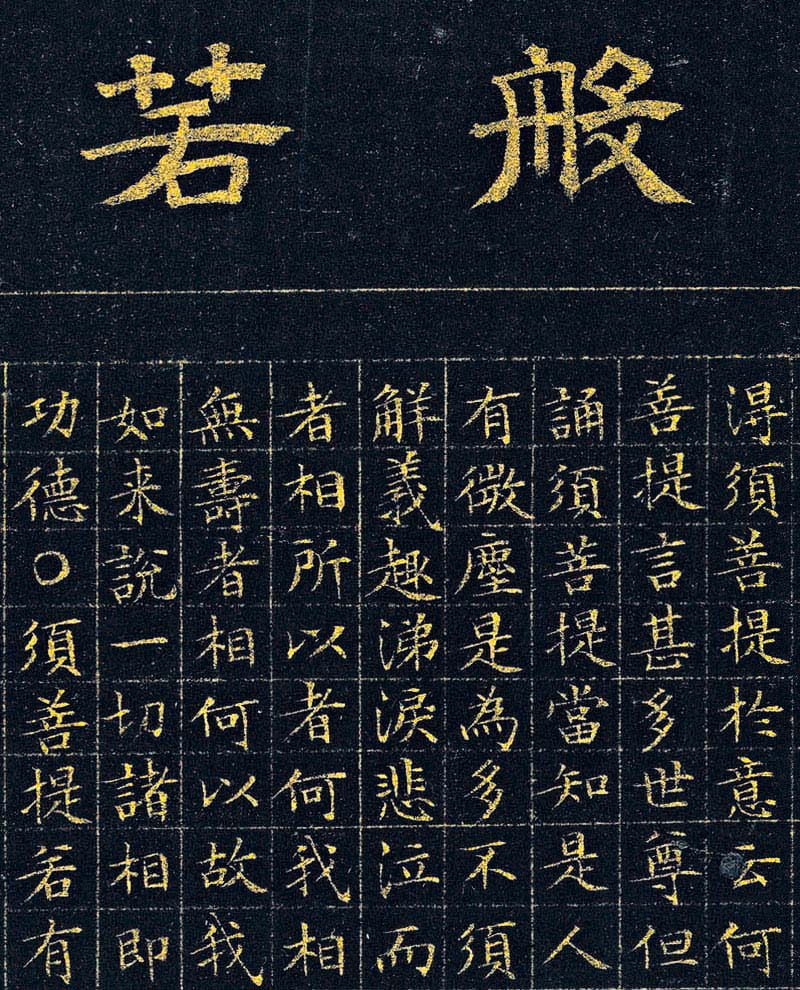 般若
淂須善提於意云何
善提言甚多世尊但
誦須菩提當知是人
有微塵是為多不須
觧義趣涕淚悲泣而
者相所以者何我相
無壽者相何以故我
如来說一切諸相即
功德〇須善提若有